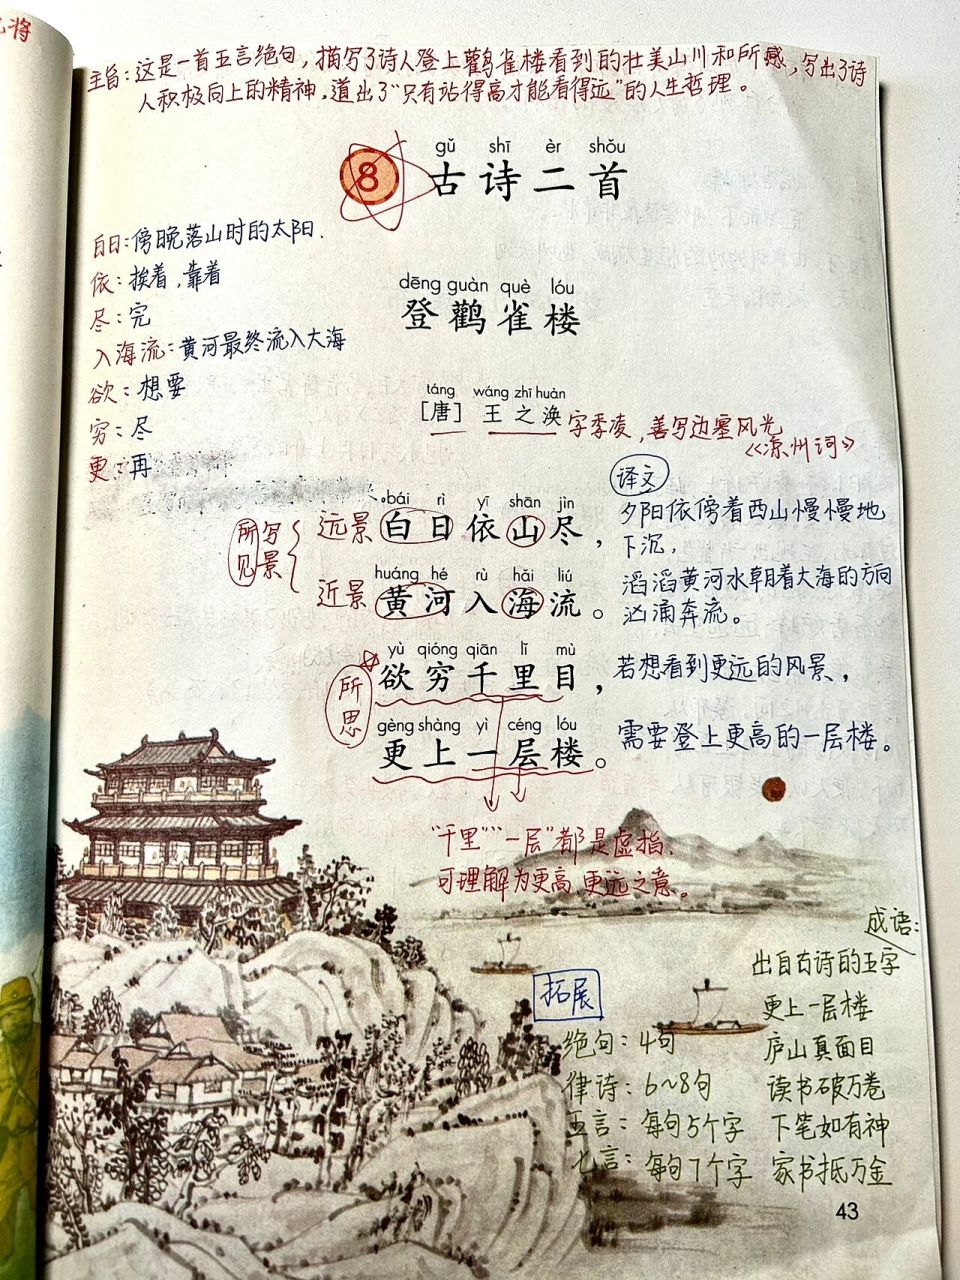 主旨：这是一首五言绝句，描写了诗人登上鹳雀楼看到的壮美山川和所感，写出了诗
人积极向上的精神，道出了“只有站得高才能看得远”的人生哲理。
gǔ shī èr shǒu
8 古诗二首
白日：傍晚落山时的太阳.
依：挨着，靠着
尽：完
入海流：黄河最终流入大海
欲：想要
穷：尽
更：再
dēng guàn què lóu
登鹳雀楼
táng wáng zhī huàn
[唐] 王之涣
字季凌，善写边塞风光
《凉州词》
译文
所见
写景
远景
bái rì yī shān jìn
白日依山尽，
夕阳依傍着西山慢慢地
下沉，
近景
huáng hé rù hǎi liú
黄河入海流。
滔滔黄河水朝着大海的方向
汹涌奔流。
所思
yù qióng qiān lǐ mù
欲穷千里目，
若想看到更远的风景，
gèng shàng yì céng lóu
更上一层楼。
需要登上更高的一层楼。
“千里”“一层”都是虚指，
可理解为更高更远之意。
拓展
绝句：4句
律诗：6~8句
五言：每句5个字
七言：每句7个字
成语：
出自古诗的五字
更上一层楼
庐山真面目
读书破万卷
下笔如有神
家书抵万金
43